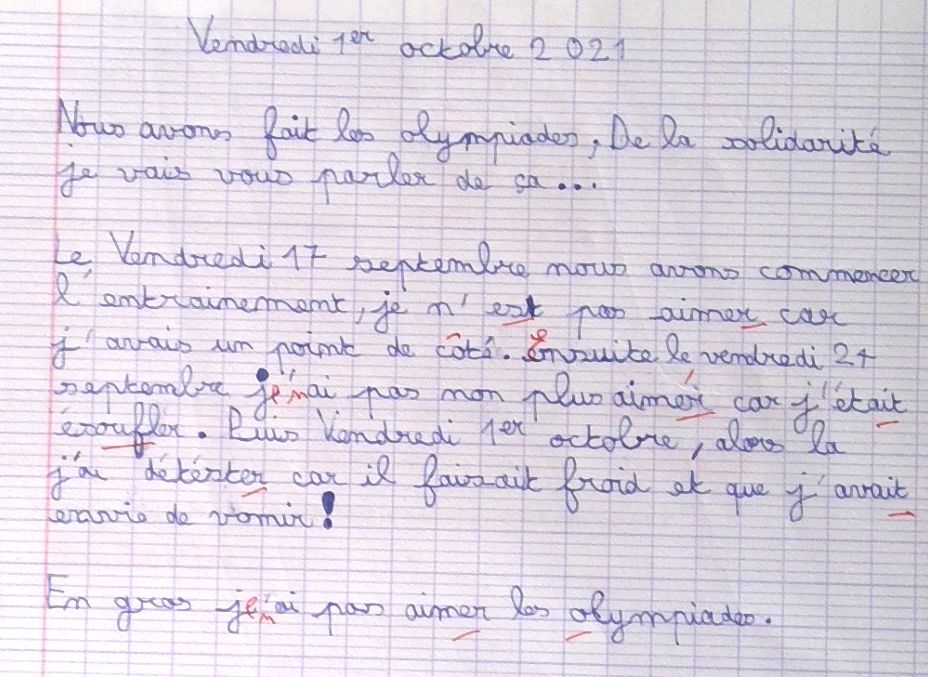 Vendredi 1er octobre 2021
Nous avons fait les olympiades, De la solidarité
je vais vous parler de ça...
Le Vendredi 17 septembre nous avons commencer
l'entrainement, je n'est pas aimer car
j'avais un point de côté. Ensuite le vendredi 24
septembre je n'ai pas non plus aimer car j'était
éssoufler. Puis Vendredi 1er octobre, alors la
j'ai détéster car il faisait froid et que j'avait
envie de vomir !
En gros je n'ai pas aimer les olympiades.